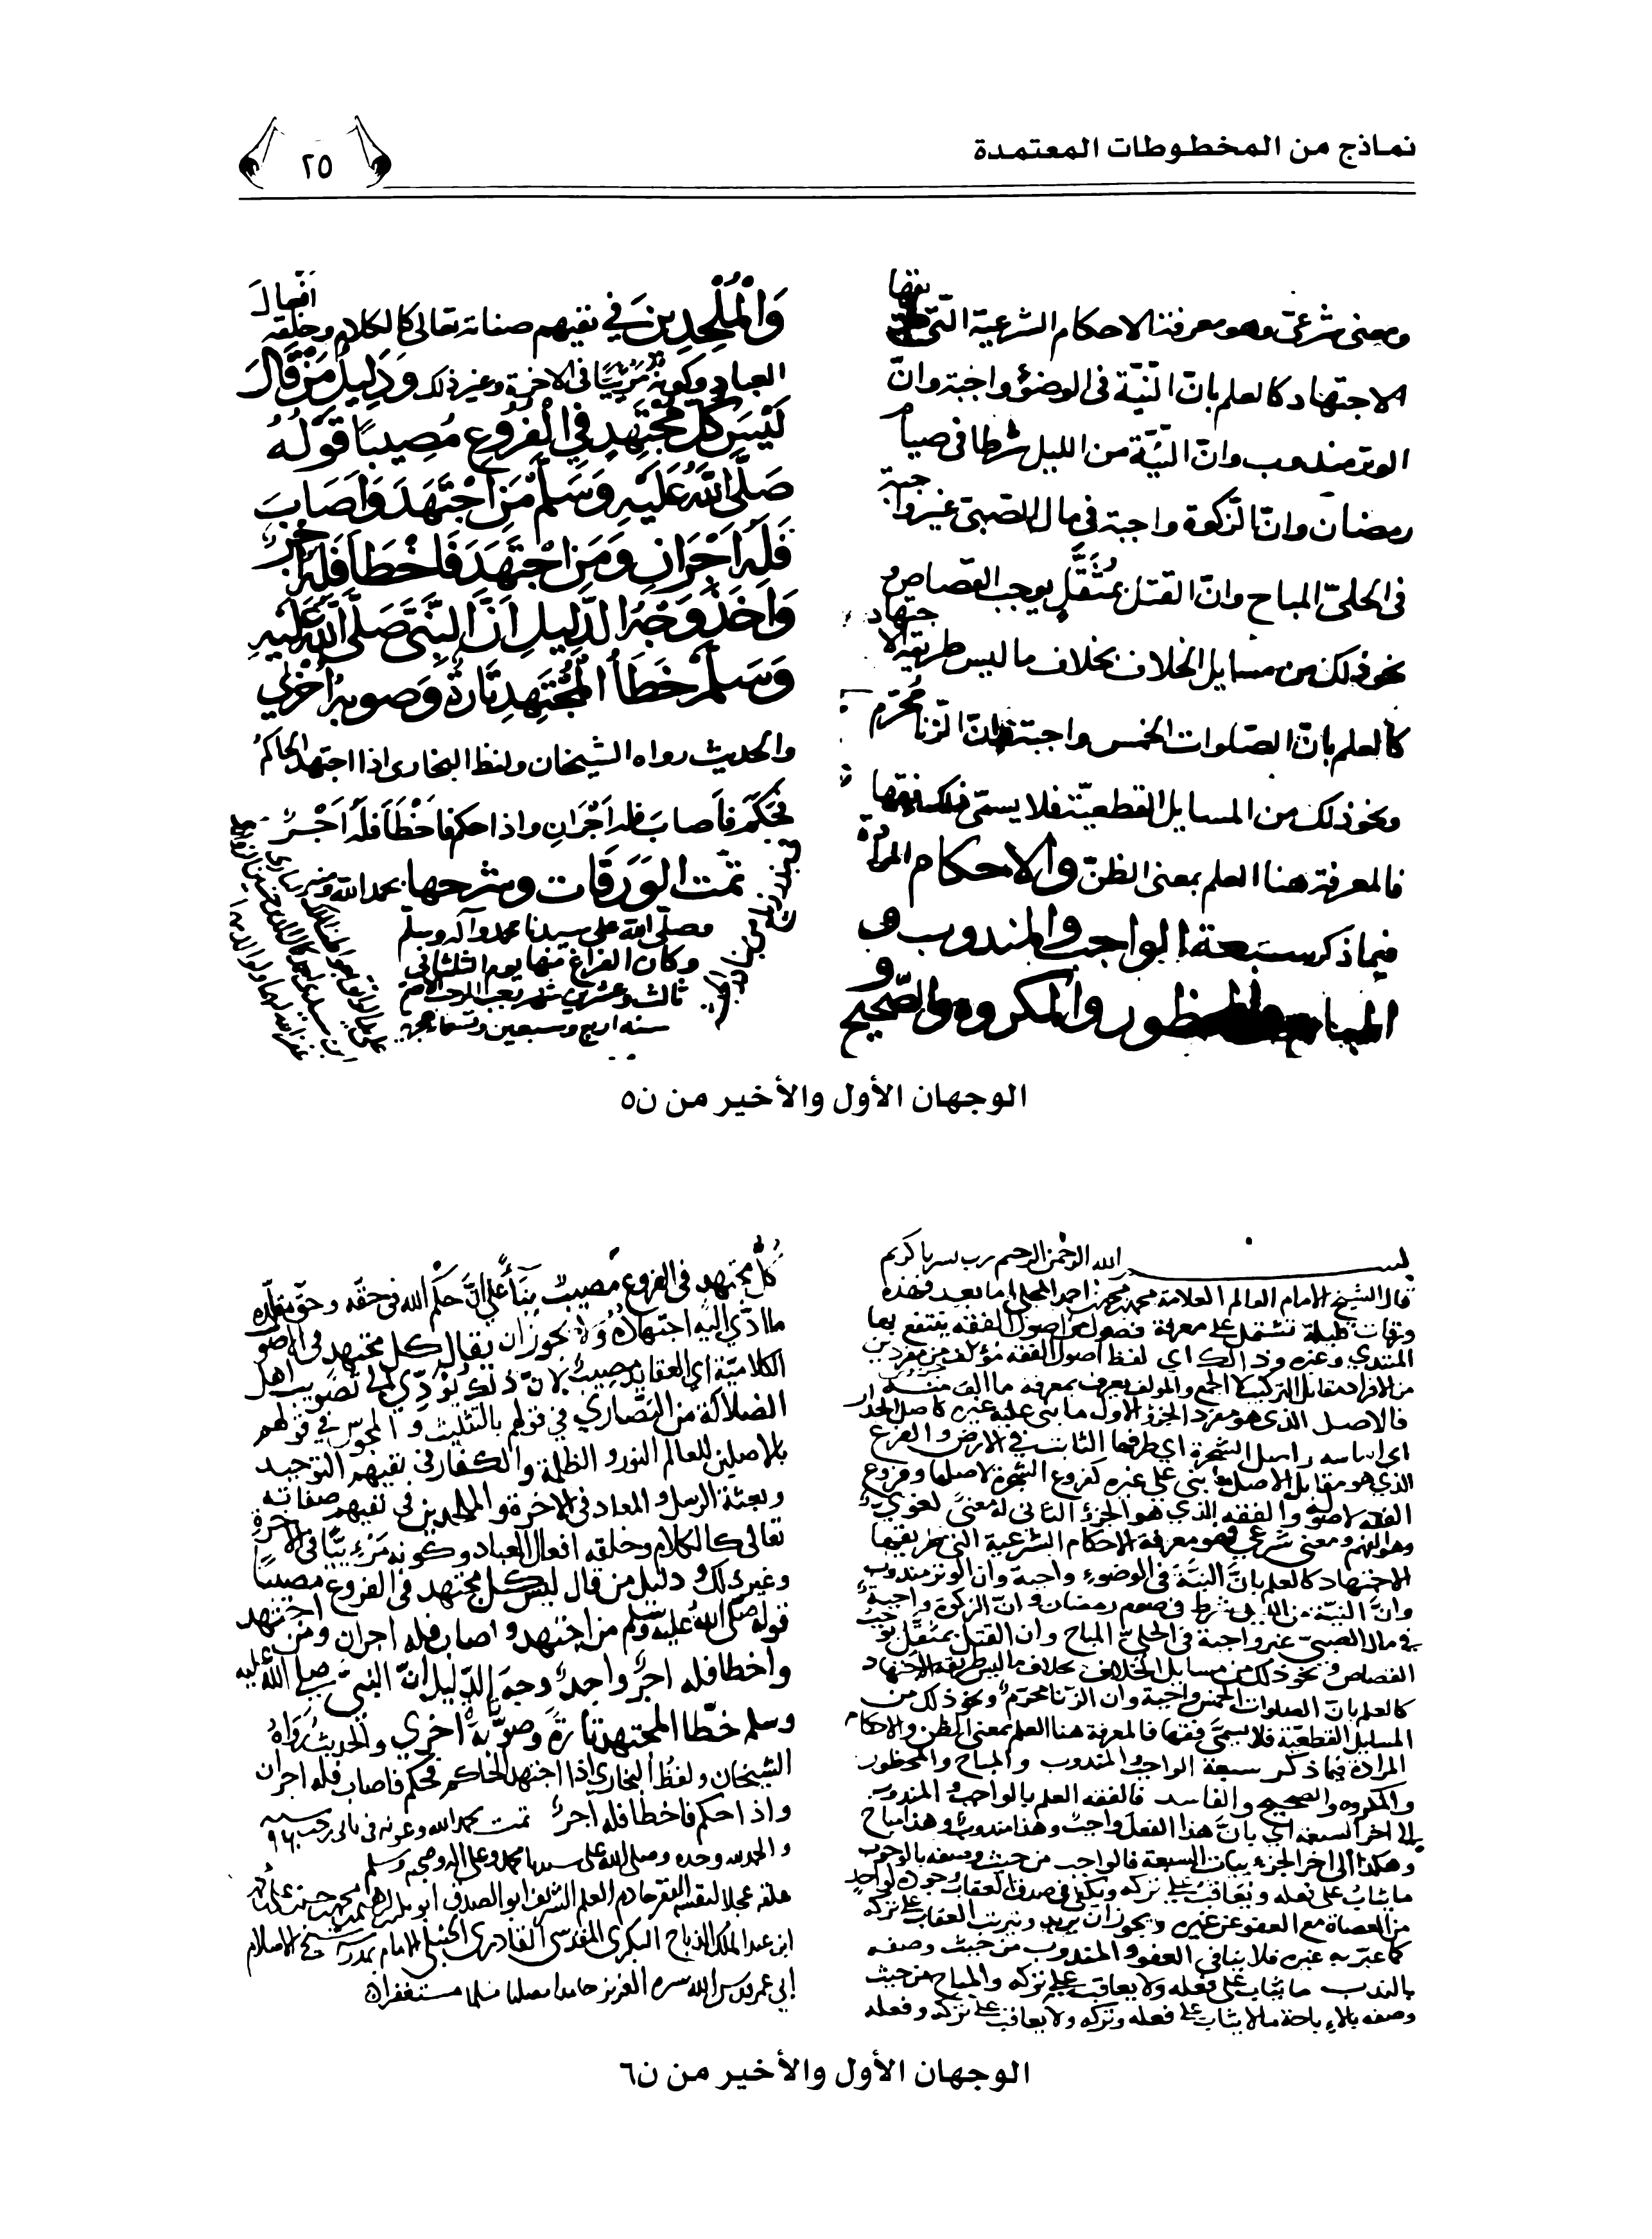 نماذج من المخطوطات المعتمدة
٢٥
ومعنى شرعيّ وهو معرفة الاحكام الشرعية الّتى طريقها
الاجتهاد كالعلم بانّ النّيّة فى الوضوء واجبة وانّ
الوتر مندوب وانّ النّيّة من الليل شرط فى صيام
رمضان وانّ الزّكوة واجبة فى مال الصّبىّ غير واجبة
فى الحلىّ المباح وانّ القتل بمُثَقَّلٍ يوجب القصاص و
نحو ذلك من مسايل الخلاف بخلاف ما ليس طريقه الاجتهاد
كالعلم بانّ الصّلوات الخمس واجبة وانّ الزّنا مُحَرَّم
ونحو ذلك من المسايل القطعيّة فلا يسمّى ذلك فقها
فالمعرفة هنا العلم بمعنى الظنّ والاحكام المرادة
فيما ذكر سَبْعة الواجب والمندوب و
المباح والمحظور والمكروه والصّحيح و
وَالْمُلْحِدِينَ فى نفيهم صفاته تعالى كالكلام وخلقه افعال
العباد وكونه مَرْئِيًّا فى الاخرة وغير ذلك وَدَلِيلُ مَنْ قَالَ
لَيْسَ كُلُّ مُجْتَهِدٍ فِي الْفُرُوعِ مُصِيبًا قَوْلُهُ
صَلَّى اللّٰهُ عَلَيْهِ وَسَلَّمَ مَنِ اجْتَهَدَ وَاَصَابَ
فَلَهُ اَجْرَانِ وَمَنِ اجْتَهَدَ فَاَخْطَأَ فَلَهُ اَجْرٌ
وَاحِدٌ وَجْهُ الدَّلِيلِ اَنَّ النَّبِيَّ صَلَّى اللّٰهُ عَلَيْهِ
وَسَلَّمَ خَطَّأَ الْمُجْتَهِدَ تَارَةً وَصَوَّبَهُ اُخْرَى
والحديث رواه الشيخان ولفظ البخارى اذا اجتهد الحاكمُ
فحَكَمَ فاَصابَ فله اَجْرَانِ واذا حكم فاَخْطَأَ فَلَهُ اَجْرٌ
تمّت الوَرَقَات وشرحها بحمد الله
وصلّى الله على سيدنا محمد وآله وسلّم
وكان الفراغ منها يوم الثلثا فى
ثالث وعشرين شهر رجب
سنه اربع وسبعين وتسعمائة
الوجهان الأول والأخير من ن٥
بسم الله الرحمن الرحيم رب يسر يا كريم
قال الشيخ الامام العالم العلامة محمد بن احمد المحلى اما بعد فهذه
ورقات قليلة تشتمل على معرفة فصول من اصول الفقه ينتفع بها
المبتدي وغيره وذالك اي لفظ اصول الفقه مؤلف من جزءين مفردين
من الافراد مقابل التركيب لا الجمع والمؤلف يعرف بمعرفة ما الف منه
فالاصل الذى هو مفرد الجزء الاول ما بنى عليه غيره كاصل الجدار
اي اساسه واصل الشجرة اي طرفها الثابت في الارض والفرع
الذي هو مقابل الاصل ما يبنى على غيره كفروع الشجرة لاصلها وفروع
الفقه لاصوله والفقه الذي هو الجزء الثانى له معنى لغوي
وهو الفهم ومعنى شرعي وهو معرفة الاحكام الشرعية التى طريقها
الاجتهاد كالعلم بانّ النيّة فى الوضوء واجبة وان الوتر مندوب
وانّ النيّة من الليل شرط فى صوم رمضان وانّ الزكوة واجبة
في مال الصبيّ غير واجبة فى الحلىّ المباح وان القتل بمثقّل يوجب
القصاص ونحو ذلك من مسايل الخلاف بخلاف ما ليس طريقه الاجتهاد
كالعلم بانّ الصلوات الخمس واجبة وان الزنا محرّم ونحو ذلك من
المسايل القطعيّة فلا يسمّى فقها فالمعرفة هنا العلم بمعنى الظن والاحكام
المرادة فيما ذكر سبعة الواجب والمندوب والمباح والمحظور
والمكروه والصحيح والفاسد فالفقه العلم بالواجب والمندوب
الى اخر السبعة اي بانّ هذا الفعل واجبٌ وهذا مندوبٌ وهذا مباح
وهكذا الى اخر الجزء بيان السبعة فالواجب من حيث وصفه بالوجوب
ما يثاب على فعله ويعاقب على تركه ويكفى فى صدق العقاب وجوده لواحد
من العصاة مع العفو عن غيره ويجوز ان يريد ويترتب العقاب على تركه
كما عبّر به غيره فلا ينافى العفو والمندوب من حيث وصفه
بالندب ما يثاب على فعله ولا يعاقب على تركه والمباح من حيث
وصفه بالاباحة ما لا يثاب على فعله وتركه ولا يعاقب على تركه وفعله
كلّ مجتهدٍ فى الفروع مُصيبٌ بِنَاءً على انّ حكم الله فى حقّه وحق مقلّده
ما ادّي اليه اجتهاده ولا يجوز ان يقال كل مجتهد فى الاصول
الكلاميّة اي العقايد مصيبٌ لانّ ذلك يُؤَدِّي الى تصويب اهل
الضلالة من النصاري في قولهم بالتثليث والمجوس في قولهم
بالاصلين للعالم النور والظلمة والكفار فى نفيهم التوحيد
وبعثة الرسل والمعاد فى الاخرة والملحدين فى نفيهم صفاته
تعالى كالكلام وخلقه افعال العباد وكونه مَرْئِيًّا فى الاخرة
وغير ذلك ودليل من قال ليس كل مجتهد فى الفروع مصيبًا
قوله صلى الله عليه وسلم من اجتهد واصاب فله اجران ومن اجتهد
واخطا فله اجرٌ واحدٌ وجه الدّليل انّ النبيّ صلى الله عليه
وسلم خطّا المجتهد تارةً وصوّبه اخري والحديث رواه
الشيخان ولفظ البخاري اذا اجتهد الحاكم فحكم فاصاب فله اجران
واذا حكم فاخطا فله اجرٌ تمت بحمد الله وعونه فى رجب سنة
والحمد لله وحده وصلى الله على سيدنا محمد وعلى اله وصحبه وسلم
ابن عبد الملك البكرى المقدسى القادرى الحنبلى الامام بمدرسة شيخ الاسلام
ابي عمر قدس الله سره العزيز حامدا مصليا مسلما مستغفرا
الوجهان الأول والأخير من ن٦